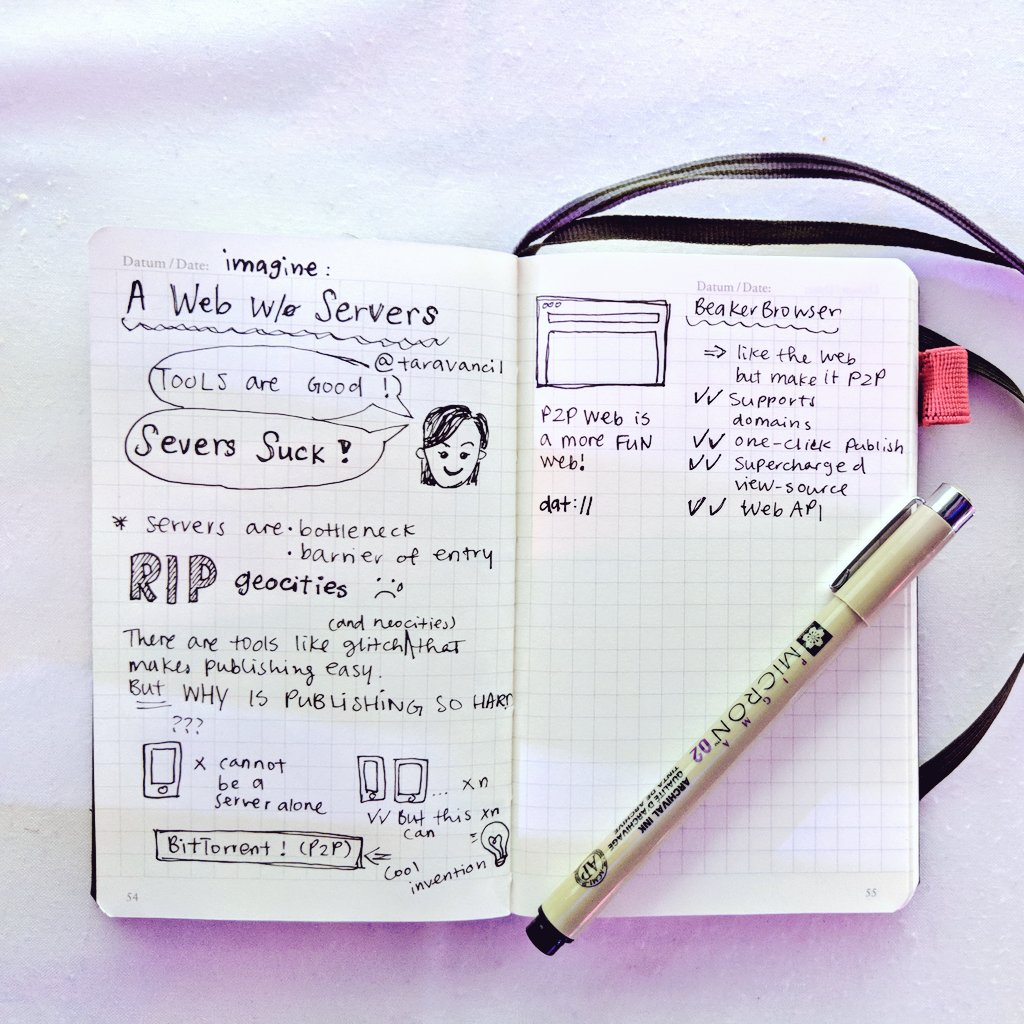 Datum / Date: imagine:
A Web w/o Servers
@taravancil
TOOLS are GOOD !
Severs Suck !
* servers are • bottleneck
• barrier of entry
RIP geocities
(and neocities)
There are tools like glitch that
makes publishing easy.
But WHY IS PUBLISHING SO HARD
???
x cannot
be a
server alone
... xn
✓✓ But this xn
can
BitTorrent ! (P2P)
cool
invention
54
Datum / Date:
BeakerBrowser
⇒ like the web
but make it P2P
✓✓ Supports
domains
✓✓ one-click publish
✓✓ Supercharged
view-source
✓✓ Web API
P2P Web is
a more FUN
web!
dat://
55
PIGMA
MICRON™ 02
ARCHIVAL INK
QUALITÉ D'ARCHIVAGE
TINTA DE ARCHIVE
AP